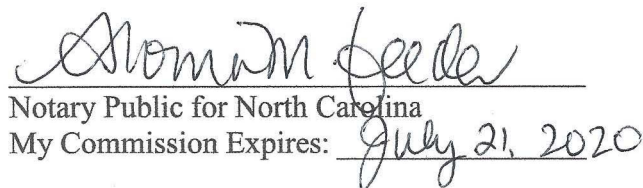 Notary Public for North Carolina
My Commission Expires: July 21, 2020